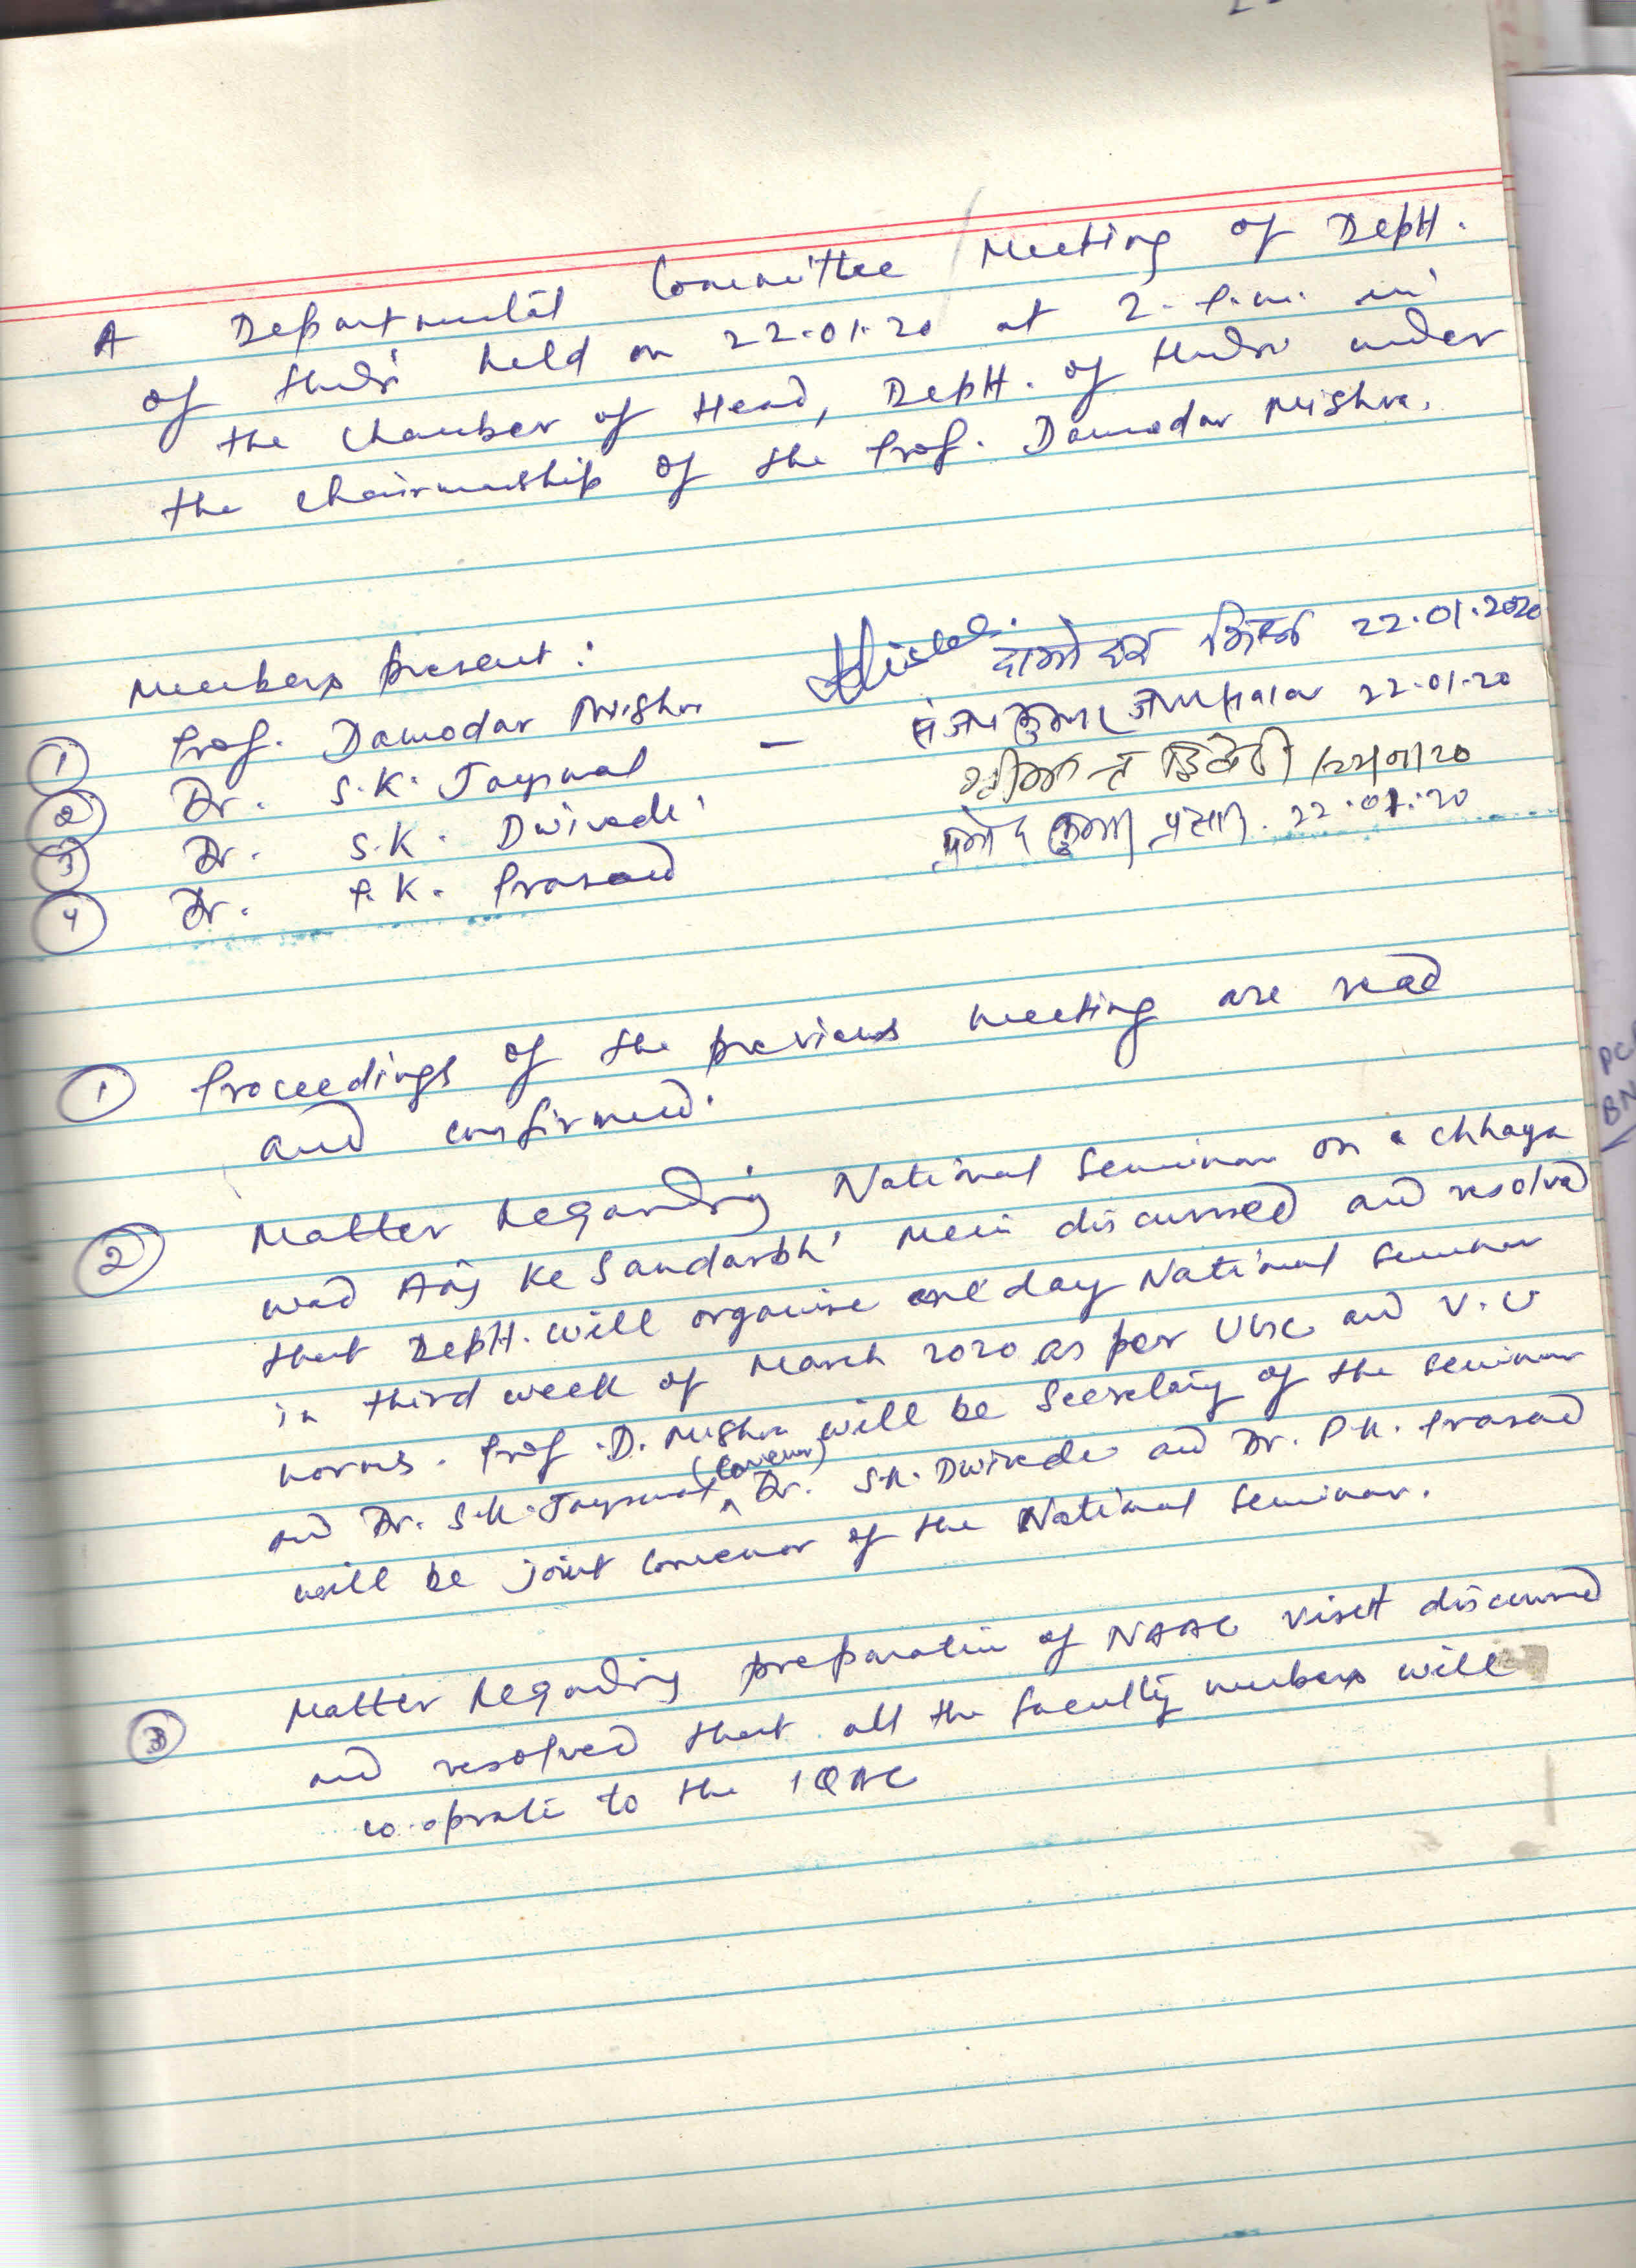 A Departmental Committee Meeting of Deptt.
of Hindi held on 22.01.20 at 2. P.m. in
the chamber of Head, Deptt. of Hindi under
the chairmanship of the Prof. Damodar Mishra.
Members present:
① Prof. Damodar Mishra दामोदर मिश्र 22.01.2020
② Dr. S.K. Jayswal – संजय कुमार जायसवाल 22.01.20
③ Dr. S.K. Dwivedi द्विवेदी 22/01/20
④ Dr. P.K. Prasad प्रमोद कुमार प्रसाद. 22.01.20
① Proceedings of the previous meeting are read
and confirmed.
② Matter Regarding National Seminar on ‘Chhaya
wad Aaj Ke Sandarbh' Mein discussed and resolved
that Deptt. will organise one day National Seminar
in third week of March 2020 as per UGC and V.U
norms. Prof. D. Mishra will be Secretary of the seminar
and Dr. S.K. Jayswal (Convenor) Dr. S.K. Dwivedi and Dr. P.K. Prasad
will be joint Convenor of the National Seminar.
③ Matter Regarding preparation of NAAC visit discussed
and resolved that all the faculty members will
co-oprate to the IQAC